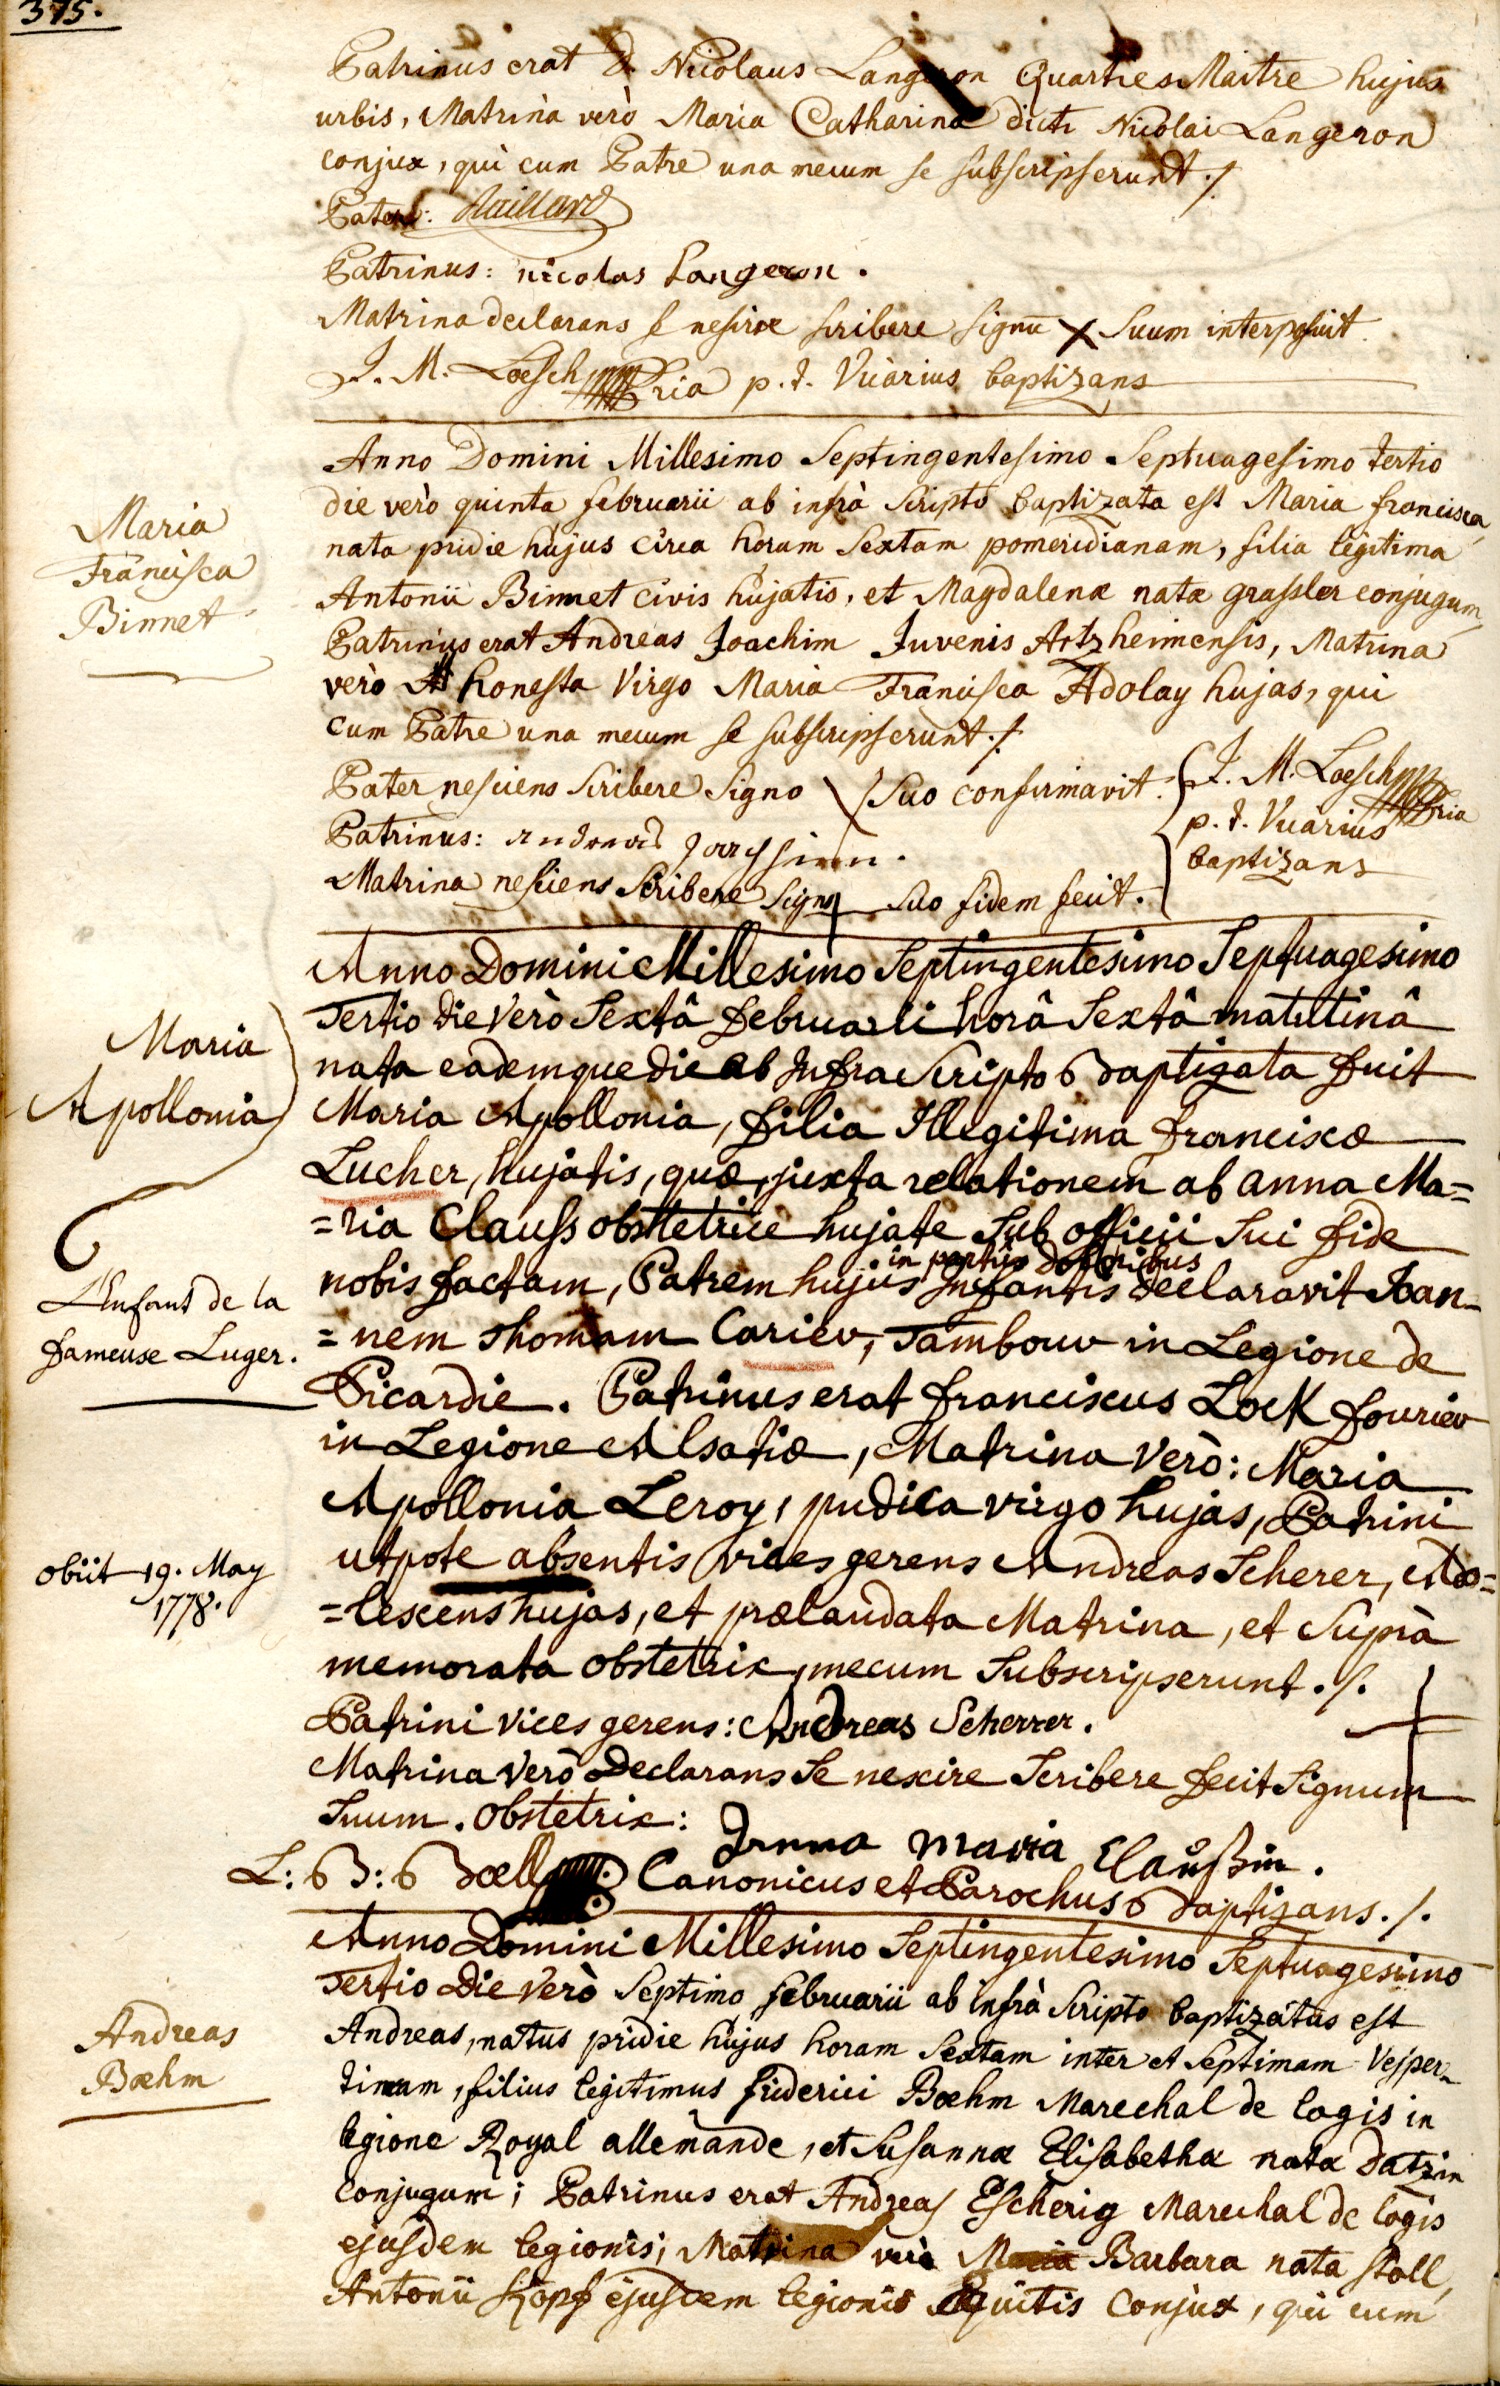 375.
Patrinus erat D. Nicolaus Langeron Quarties Maitre hujus
urbis, Matrina verò Maria Catharina dicti Nicolai Langeron
conjux, qui cum Patre una mecum se subscripserunt ./.
Pater:
Patrinus: nicolas Langeron.
Matrina declarans se nescire scribere signū X suum interposuit.
J. M. Loesch pria p. t. Vicarius baptizans
Anno Domini Millesimo Septingentesimo Septuagesimo tertio
die verò quinta februarii ab infrà scripto baptizata est Maria francisca,
nata pridie hujus circa horam sextam pomeridianam, filia legitima
Antonii Binnet civis hujatis, et Magdalenæ natæ grassler conjugum,
Patrinus erat Andreas Joachim Juvenis Artzheimensis, Matrina
verò honesta Virgo Maria Francisca Adolay hujas, qui
cum Patre una mecum se subscripserunt ./.
Pater nesciens scribere signo X suo confirmavit.
Patrinus:
Matrina nesciens scribere signo + suo fidem fecit.
J. M. Loesch pria
p. t. Vicarius
baptizans
Maria
Francisca
Binnet
Anno Domini Millesimo Septingentesimo Septuagesimo
Tertio die verò Sextâ februarii horâ Sextâ matutinâ
nata eademque die ab Infra Scripto Baptizata fuit
Maria Apollonia, filia Illegitima franciscæ
Lucher, hujatis, quæ, juxta relationem ab anna Ma=
=ria Clauss obstetrice hujate sub officii sui fide
nobis factam, Patrem hujus Infantis in partûs doloribus declaravit Joan-
=nem Thomam Carier, Tambour in Legione de
Picardie. Patrinus erat franciscus Lock fourier
in Legione Alsatiæ, Matrina verò: Maria
Apollonia Leroy, pudica virgo hujas, Patrini
utpote absentis vices gerens Andreas Scherer, Ado=
=lescens hujas, et prælaudata Matrina, et Suprà
memorata obstetrix, mecum Subscripserunt ./.
Patrini vices gerens: Andreas Scherrer.
Matrina verò Declarans se nescire Scribere fecit Signum +
Suum. Obstetrix: Anna maria Claußin.
L: B: Bœll Canonicus et Parochus Baptizans ./.
Maria
Apollonia
L'Enfant de la
fameuse Luger.
obiit 19. May
1778.
Anno Domini Millesimo Septingentesimo Septuagesimo
Tertio Die verò Septimo februarii ab infrà scripto baptizatus est
Andreas, natus pridie hujus horam sextam inter et septimam Vesper-
tinam, filius legitimus friderici Bœhm Marechal de logis in
legione Royal allemande, et Susannæ Elisabethæ natæ Datzin
conjugum; Patrinus erat Andreas Escherig Marechal de logis
ejusdem legionis; Matrina verò Barbara nata stoll,
Antonii Kopf ejusdem legionis Equitis conjux, qui cum
Andreas
Bœhm